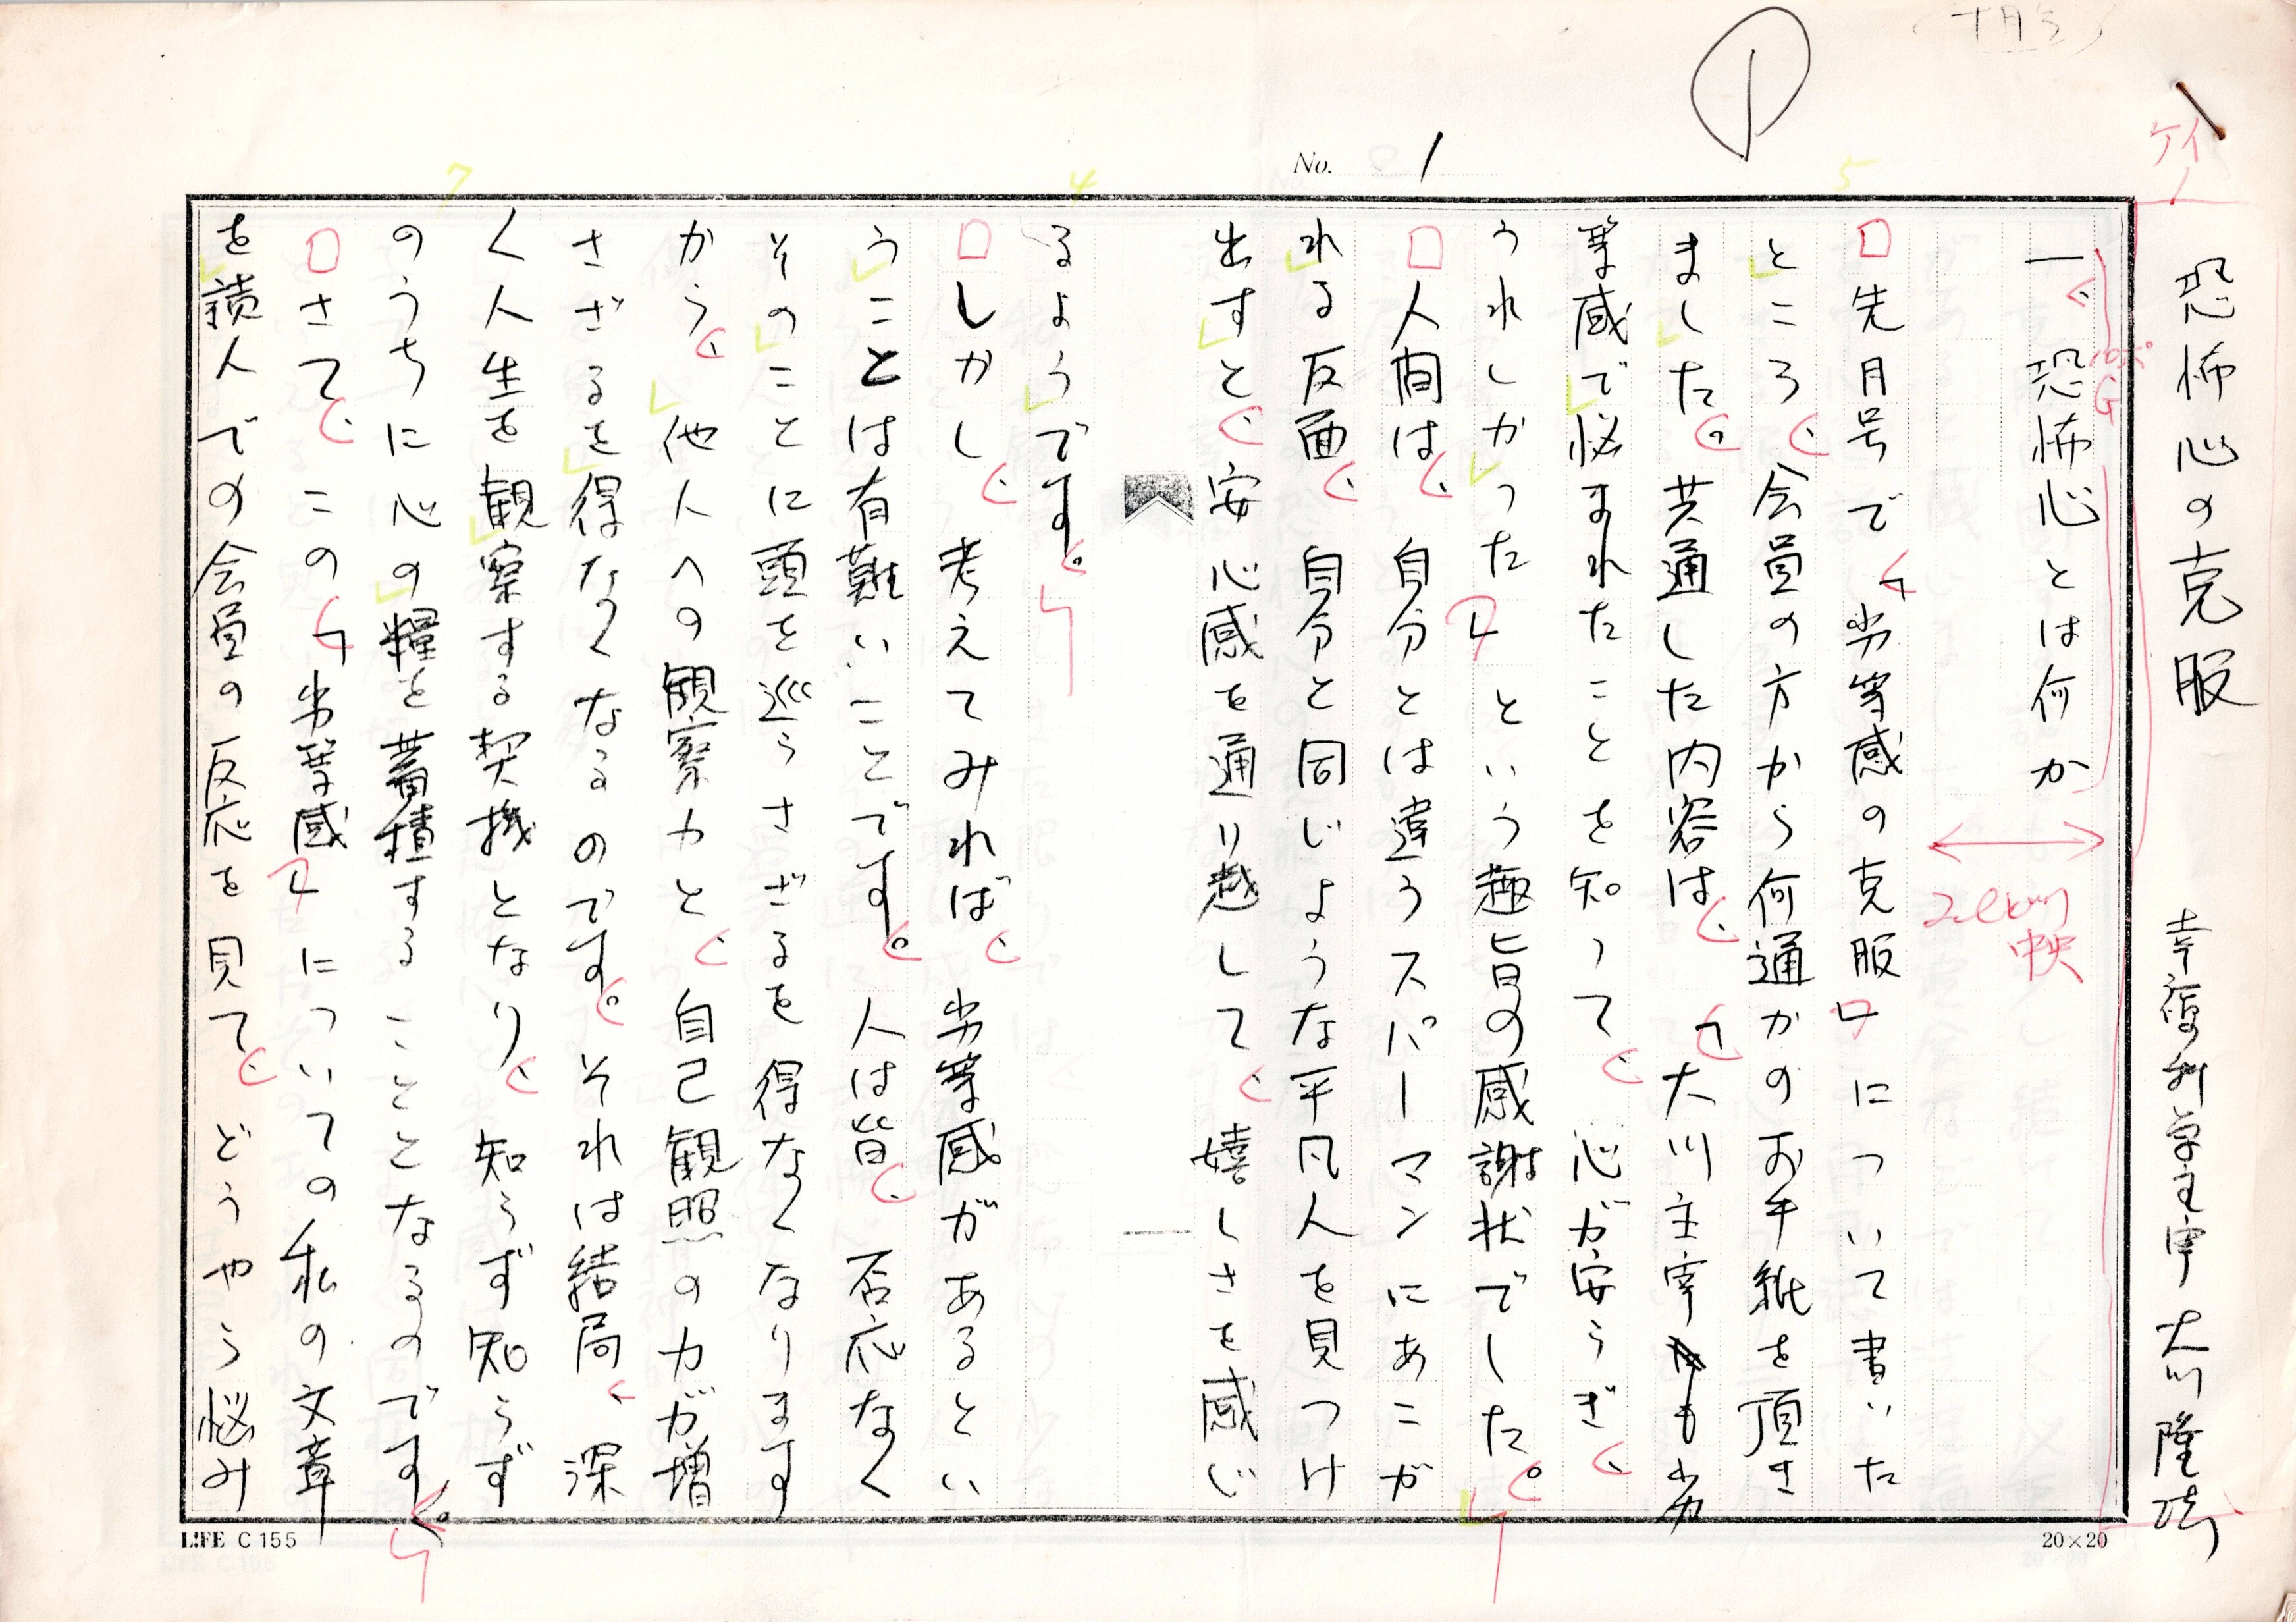 (十月号)
①
No. 1
ケイ
恐怖心の克服
幸福科学主宰 大川隆法
一、恐怖心とは何か
中央
5
先月号で「劣等感の克服」について書いた
ところ、会員の方から何通かのお手紙を頂き
ました。共通した内容は、「大川主宰も劣
等感で悩まれたことを知って、心が安らぎ、
うれしかった」という趣旨の感謝状でした。
人間は、自分とは違うスーパーマンにあこが
れる反面、自分と同じような平凡人を見つけ
出すと、安心感を通り越して、嬉しさを感じ
4
るようです。
しかし、考えてみれば、劣等感があるとい
うことは有難いことです。人は皆、否応なく
そのことに頭を巡らさざるを得なくなります
から、他人への観察力と、自己観照の力が増
さざるを得なくなるのです。それは結局、深
く人生を観察する契機となり、知らず知らず
7
のうちに心の糧を蓄積することとなるのです。
さて、この「劣等感」についての私の文章
を読んでの会員の反応を見て、どうやら悩み
LIFE C155
20×20